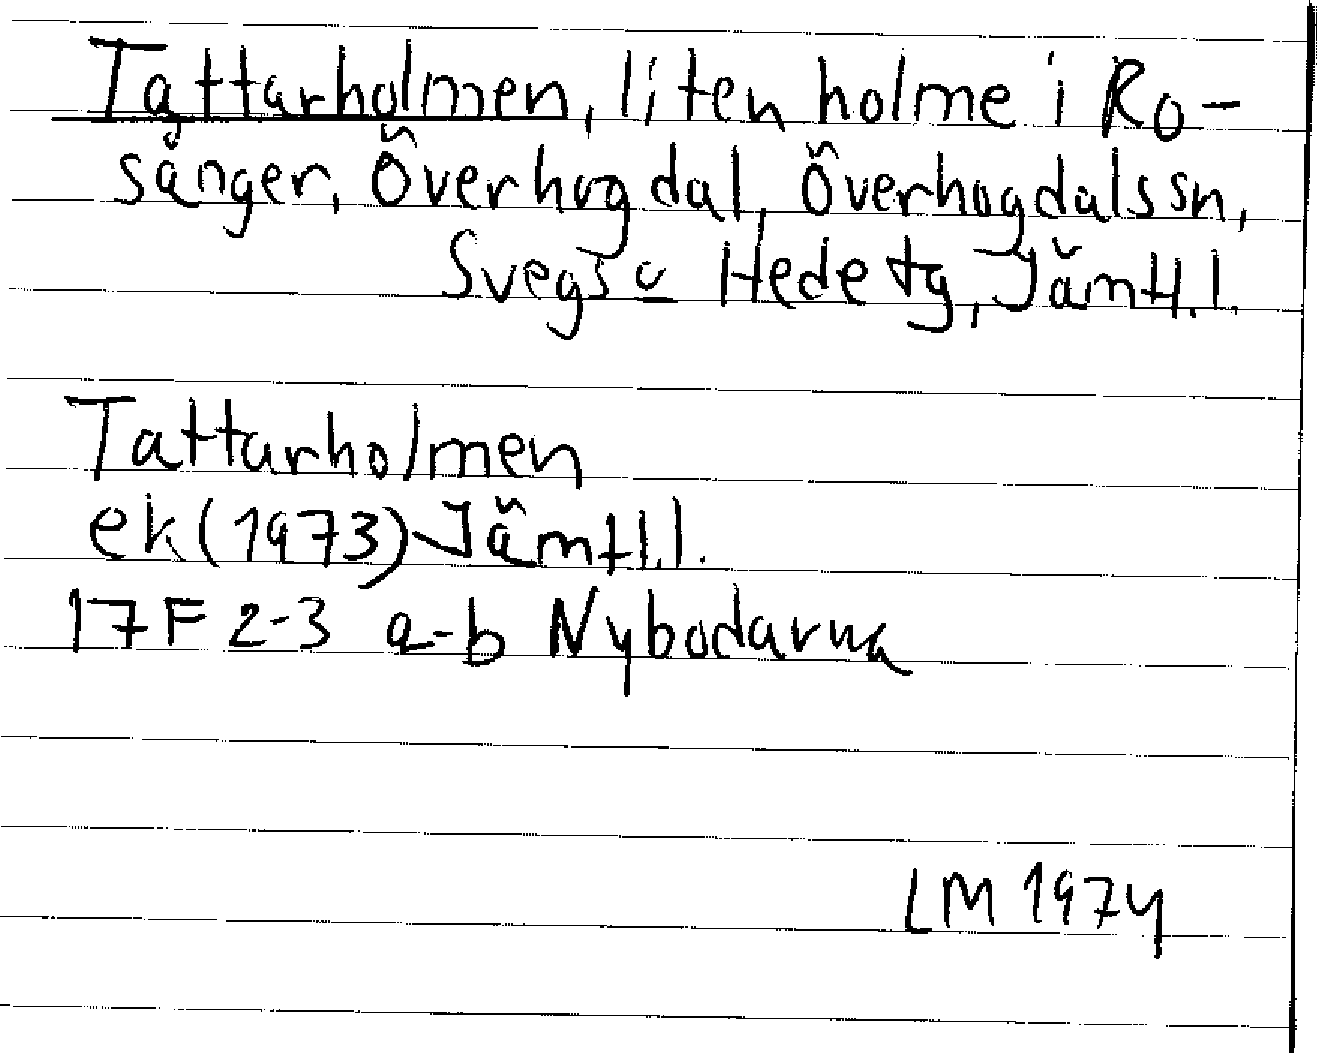 Tattarholmen, liten holme i Ro-
sånger, Överhogdal, Överhogdals sn,
Svegs o Hede tg, Jämtl. l.
Tattarholmen
ek (1973) Jämtl. l.
17F 2-3 a-b Nybodarna
LM 1974